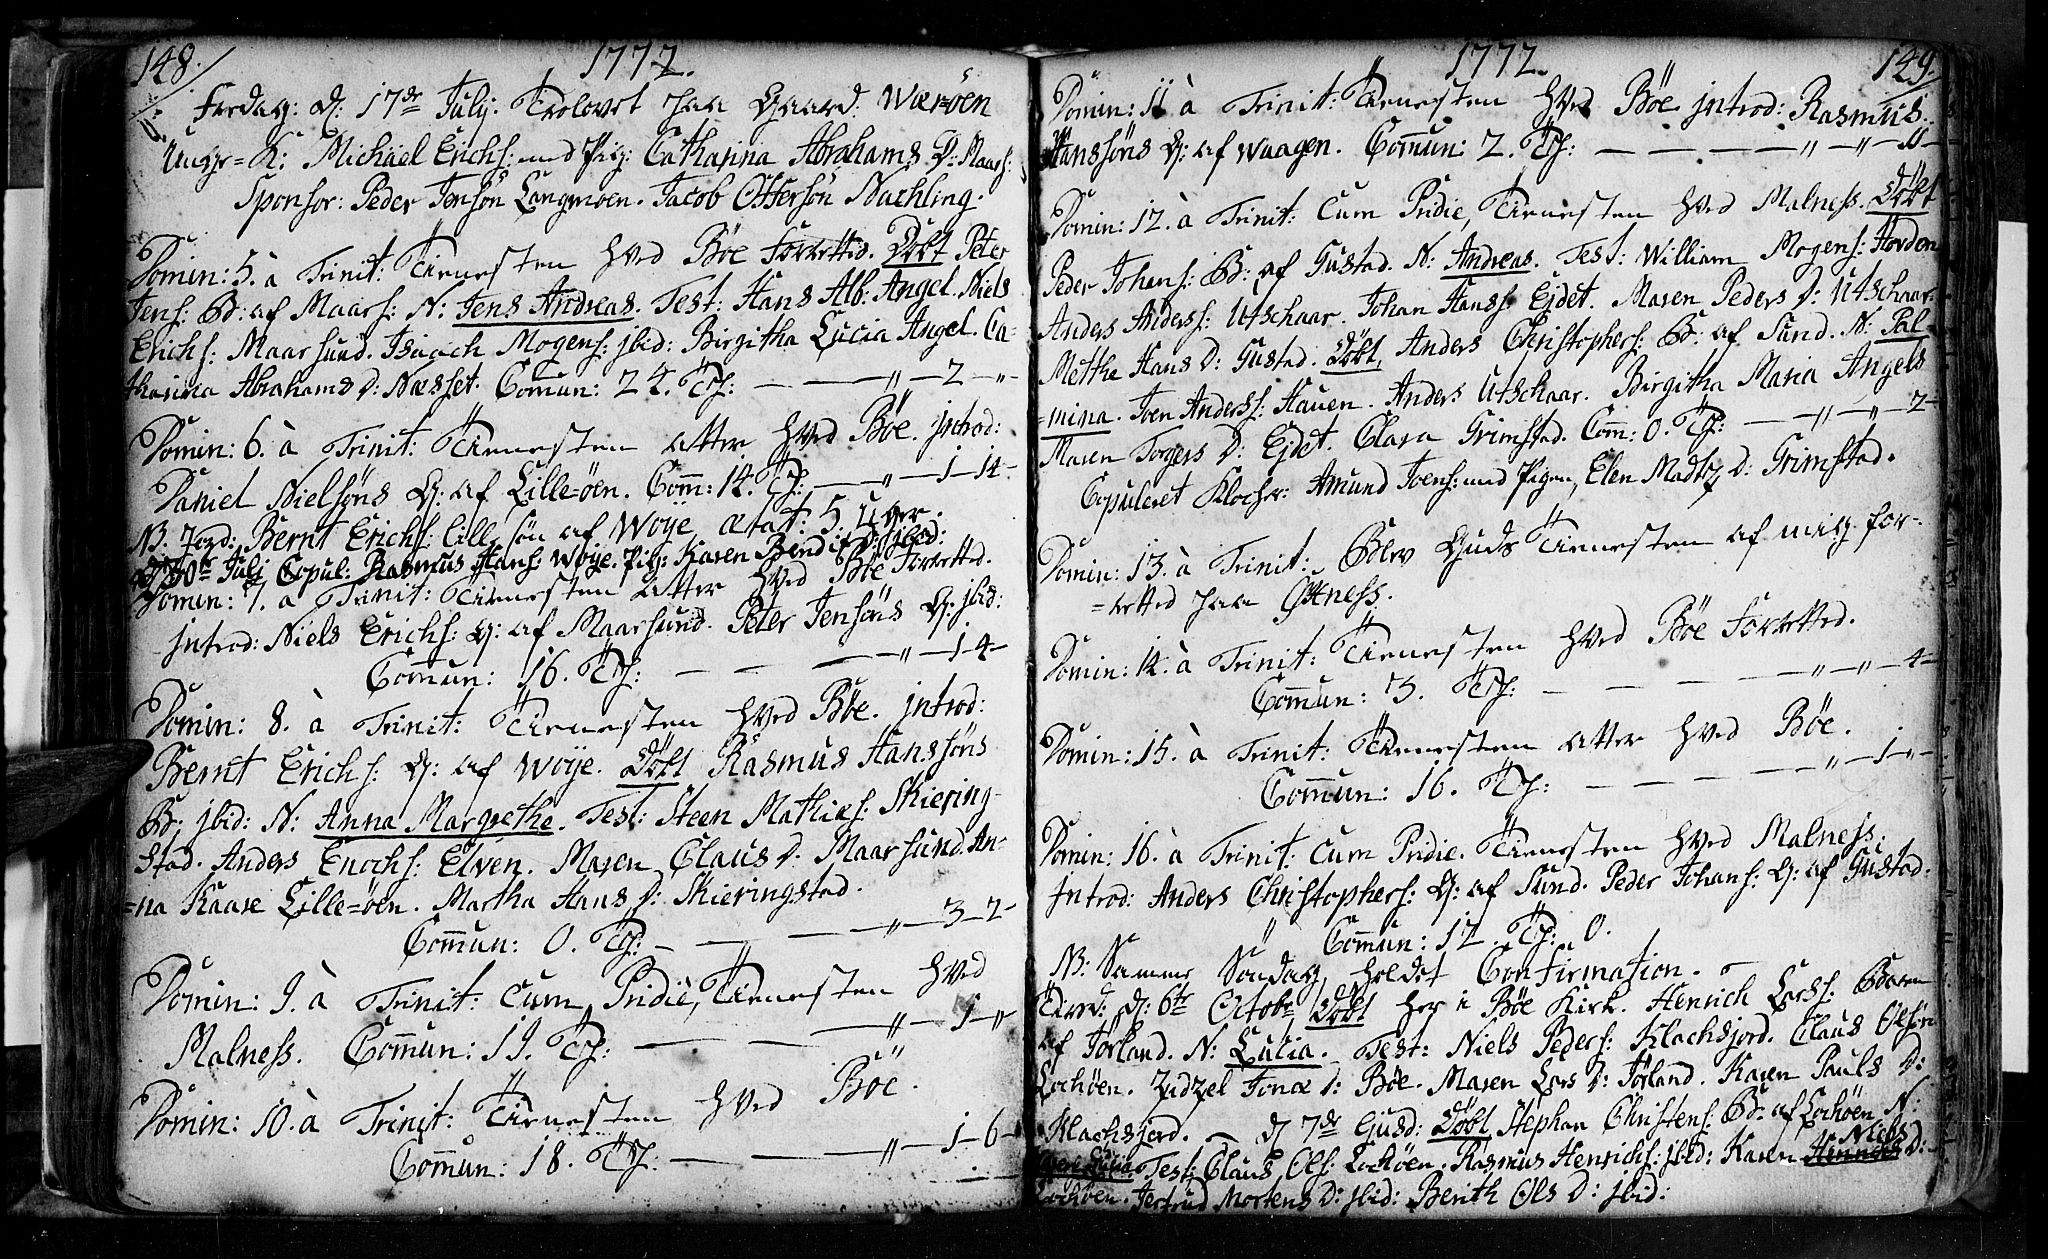 148.
1772.
Fredag: d: 17de Julij. Trolovet paa Gaard: Wærøen
Ungk=K: Michäel Erichs: med Pig: Catharina Abrahams D: Maars:
Sponsor: Peder Jensøn Langmoen. Jacob Ottersøn Nachling.
Domin: 5. à Trinit: Tienesten hved Böe forretted. Döbt Peter
Jens: B: af Maars: N: Jens Andreas. Test: Hans Alb: Angel. Niels
Erichs: Maarsund. Isaach Mogens: jbid: Birgitha Lucia Angel. Ca-
tharina Abrahams D: Næsset. Comun: 24. Tf: — — " — 2 — "
Domin: 6. à Trinit: Tienesten atter hved Böe. jntrod:
Daniel Nielsøns Q: af Lille=öen. Comm: 14. Tf: — " — 1 — 14 —
NB. Jord: Bernt Erichs: lille søn af Woye ætat: 5. Uger.
d 30te Juli Copul: Rasmus Hans: Woye. Pig: Karen Bendix D: jbid:
Domin: 7. à Trinit: Tienesten atter hved Böe forretted.
jntrod: Niels Erichs: Q: af Maarsund. Peter Jensøns Q: jbid:
Comun: 16. Tf: — — — " — 1 - 4 —
Domin: 8. à Trinit: Tienesten hved Böe. jntrod:
Bernt Erichs: Q: af Woye. Döbt Rasmus Hanssøns
B: jbid: N: Anna Margrethe. Test: Steen Mathies: Skiering-
stad. Anders Enochs: Elven. Maren Claus D. Maarsund. An-
=na Kaase Lille=öen. Martha Hans D: Skieringstad.
Comun: 0. Tf: — — — " — 3 — 2 —
Domin: 9. à Trinit: cum Pridiè, Tienesten hved
Malness. Comun: 19. Tf: — — " — 1 — "
Domin: 10. à Trinit: Tienesten hved Böe.
Comun: 18. Tf: — — — " — 1 — 6 —
149.
1772.
Domin: 11 à Trinit: Tienesten hved Böe jntrod: Rasmus
Hanssøns Q: af Waagen. Comun: 2. Tf: — — — — " — " — 11 —
Domin: 12. à Trinit: cum Pridie, Tienesten hved Malness. Döbt
Peder Johans: B: af Gustad. N: Andreas. Test: William Mogens: Hovden
Anders Anderss: Utschaar. Johan Hanss: Ejdet. Maren Peders D: Utschaar.
Methe Hans D: Gustad. Döbt, Anders Christophers: B: af Sund. N: Pal-
=mina. Joen Anderss: Hauen. Anders Utschaar. Birgitha Maria Angels
Maren Torgers D: Ejdet. Clara Grimstad. Com: 0. Tf: — " — " — 2 —
Copuleret Klocker: Amund Joens: med Pigen, Elen Madtz D: Grimstad.
Domin: 13. à Trinit: Blev Guds Tienesten af mig for-
=rettet paa Øxness.
Domin: 14. à Trinit: Tienesten hved Böe forretted.
Comun: 3. Tf: — — — " — " — 4 —
Domin: 15. à Trinit: Tienesten atter hved Böe.
Comun: 16. Tf: — — — " — 1 — " —
Domin: 16. à Trinit: cum Pridie. Tienesten hved Malness.
jntrod: Anders Christophers: Q: af Sund. Peder Johans: Q: af Gustad.
Comun: 12. Tf: 0.
NB: Samme Söndag holdet Confirmation. —
Tirsd: d: 6te Octobr Döbt her i Böe Kirk. Henrich Larss: Barn
af Jörland. N: Lucia. Test: Niels Peders: Klachsjord. Claus Olsøn
Lochöen. Zidzel Jonæ D: Böe. Maren Lars D: Jörland. Karen Pauls D:
Klachsjord. — d 7de Ejusd: Döbt Stephan Christens: B: af Lochöen N:
Test: Claus Ols: Lochöen. Rasmus Henrichs: jbid: Karen Niels D:
Lochöen. Jertrud Mortens D: jbid: Berith Ols D: jbid: